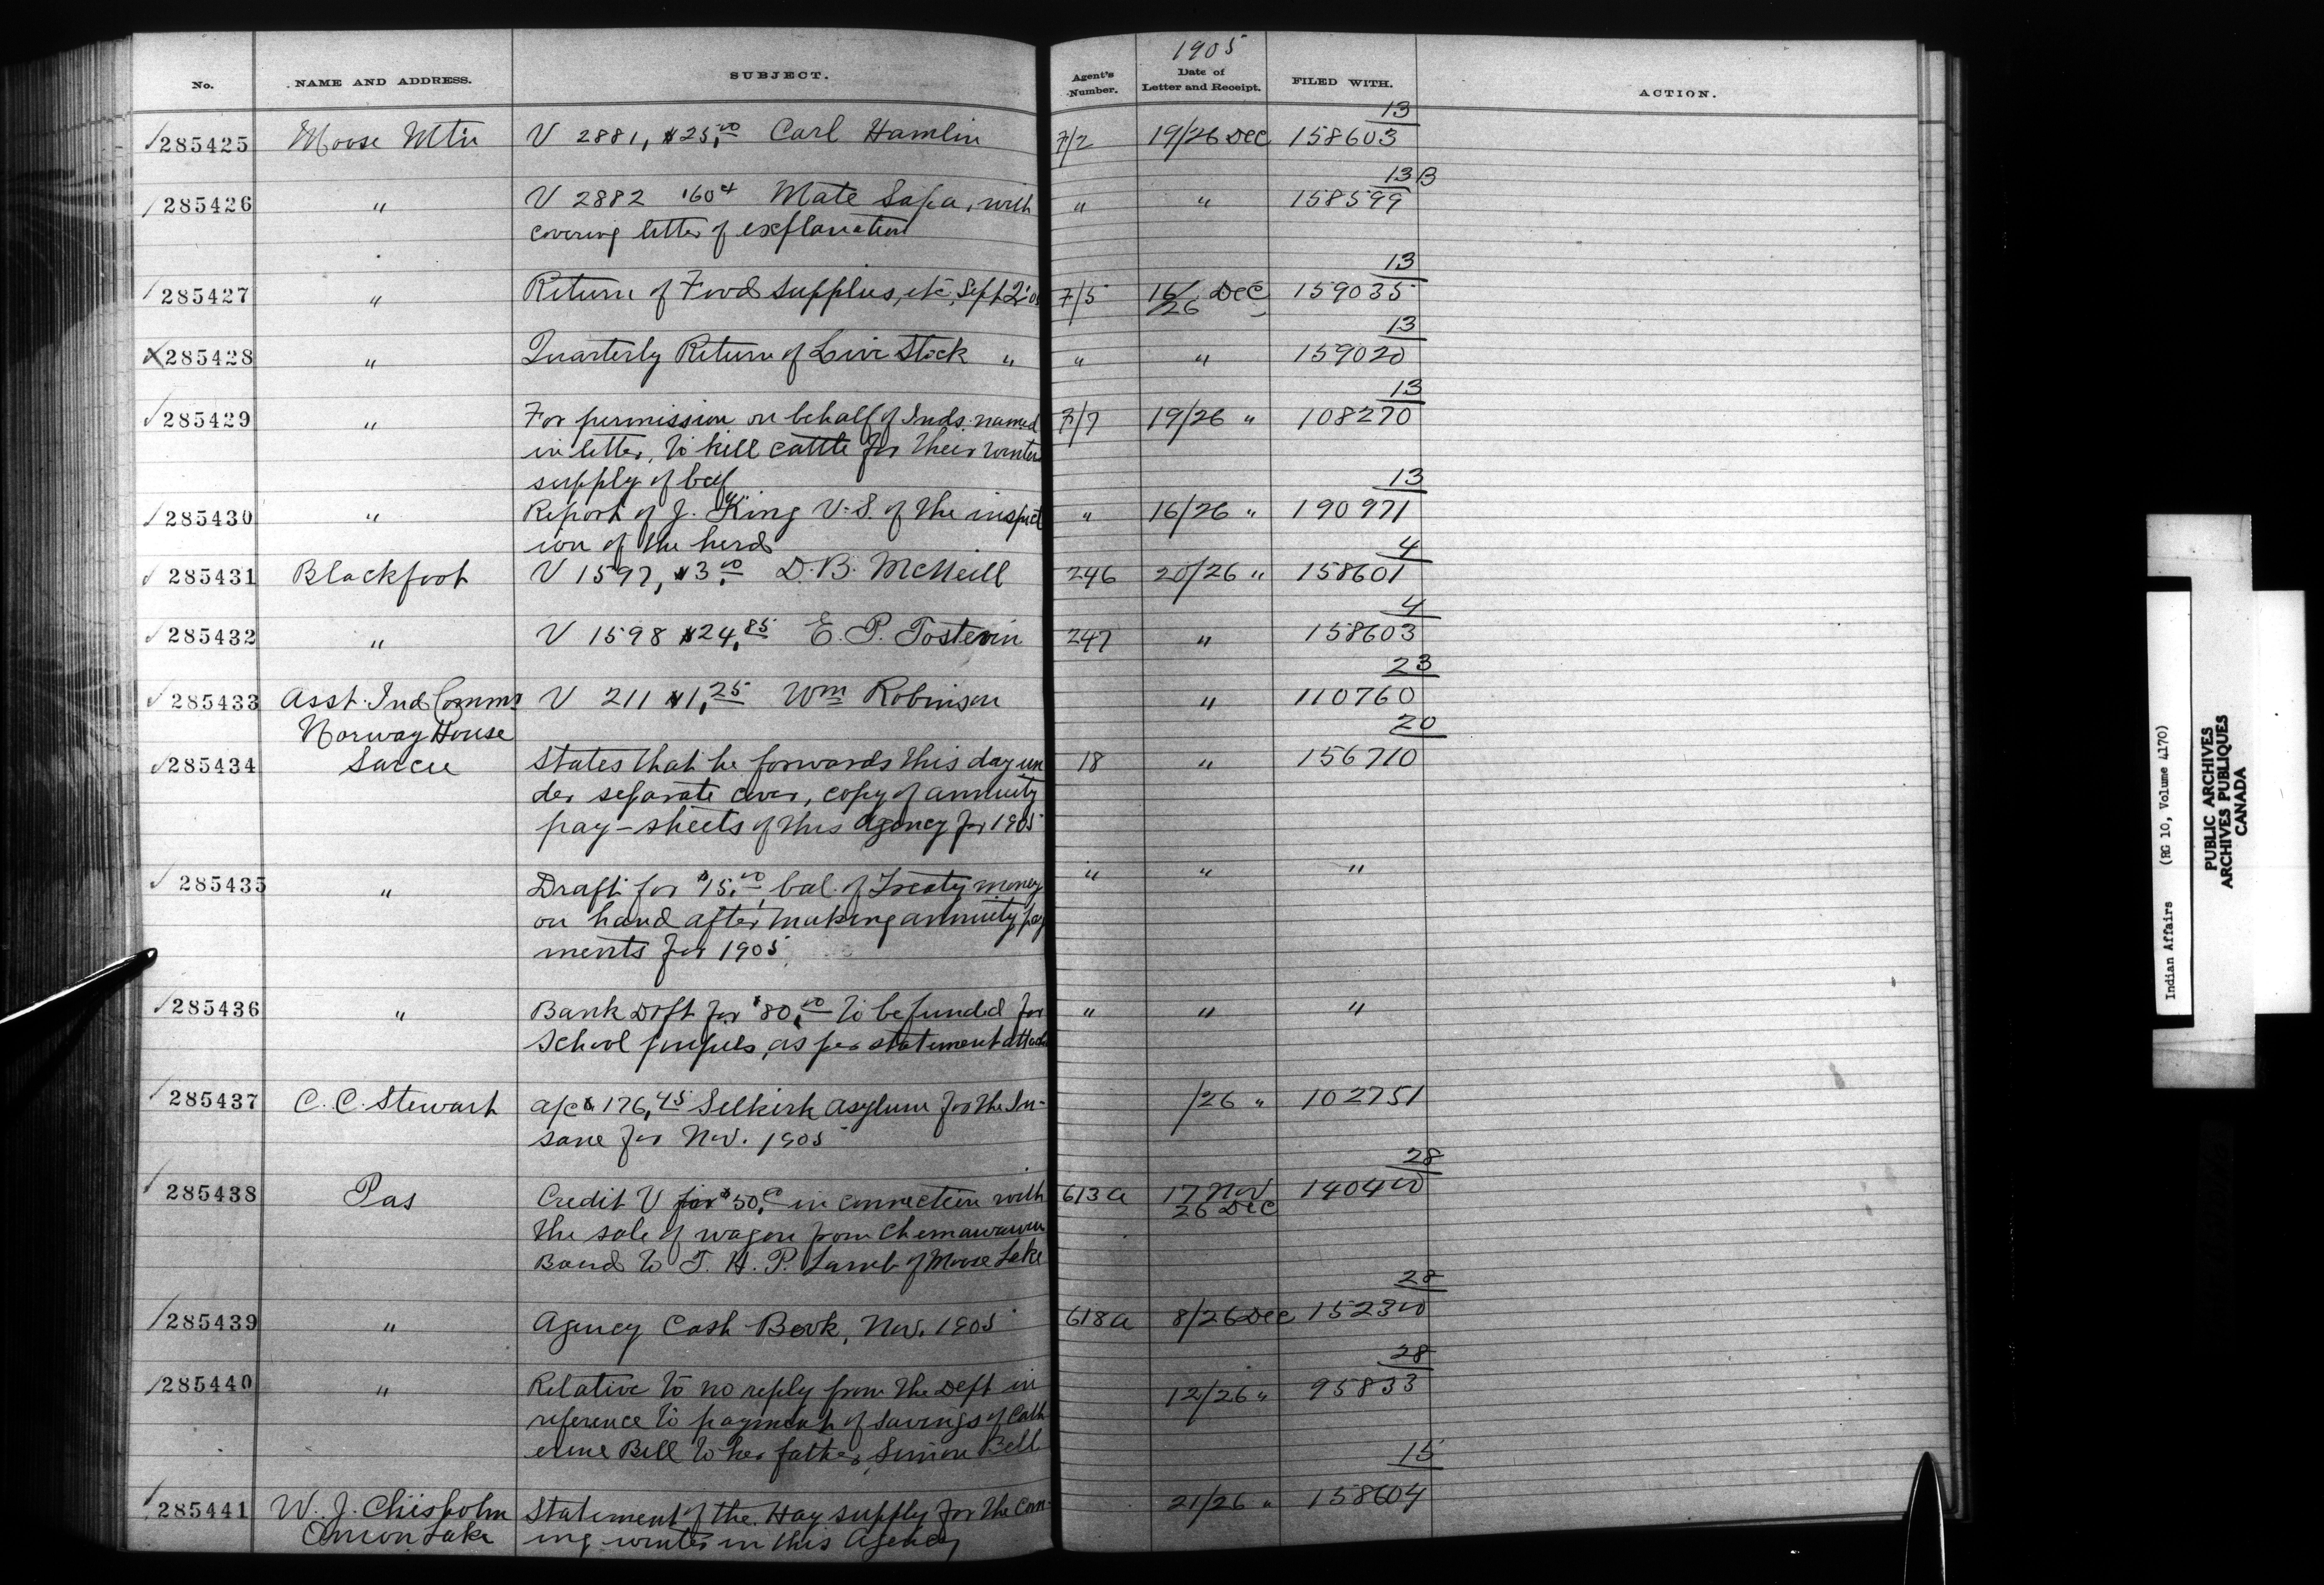 No. NAME AND ADDRESS. SUBJECT. Agent's Number. 1905 Date of Letter and Receipt. FILED WITH. ACTION.
13
285425 Moose Mtn V 2881, $25.00 Carl Hamlin 7/2 19/26 Dec 158603
13 B
285426 " V 2882 160 Mate Sapa, with " " 158599
covering letter of explanation
13
285427 " Return of Food Supplies, etc, Sept 2' 7/5 16/26 Dec 159035
13
285428 " Quarterly Return of Live Stock " " " 159020
13
285429 " For permission on behalf of Inds. named 7/7 19/26 " 108270
in letter, to kill cattle for their winter
supply of beef
13
285430 " Report of J. King V.S. of the inspect " 16/26 " 190971
ion of the herds
4
285431 Blackfoot V 1597, $3.00 D. B. McNeill 246 20/26 " 158601
4
285432 " V 1598 $24.85 E. P. Tostevin 247 " 158603
23
285433 Asst. Ind Commr V 211 $1.25 Wm Robinson " 110760
Norway House
20
285434 Sarcee States that he forwards this day un 18 " 156710
der separate cover, copy of annuity
pay-sheets of this Agency for 1905
285435 " Draft for $15.00 bal. of Treaty money " " "
on hand after making annuity pay
ments for 1905
285436 " Bank Dft for $80.00 to be funded for " " "
School pupils, as per statement attach
285437 C. C. Stewart a/c $176.45 Selkirk Asylum for the In- /26 " 102751
sane for Nov. 1905
28
285438 Pas Credit V for $50.00 in connection with 613a 17 Nov 26 Dec 140400
the sale of wagon from Chemawawin
Band to T. H. P. Lamb of Moose Lake
28
285439 " Agency Cash Book, Nov. 1905 618a 8/26 Dec 152300
28
285440 " Relative to no reply from the Dept in 12/26 " 95833
reference to payment of savings of Cath
erine Bell to her father, Simon Bell
15
285441 W. J. Chisholm Statement of the Hay supply for the com- 21/26 " 158604
Onion Lake ing winter in this Agency
Indian Affairs (RG 10, Volume 4170)
PUBLIC ARCHIVES
ARCHIVES PUBLIQUES
CANADA